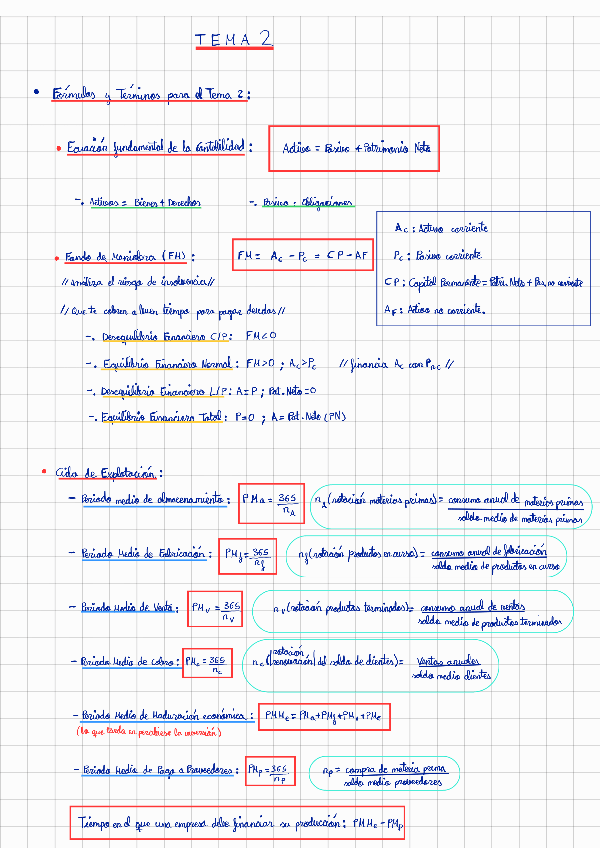 TEMA 2
• Fórmulas y Términos para el Tema 2:
• Ecuación fundamental de la Contabilidad: Activo = Pasivo + Patrimonio Neto
-. Activos = Bienes + Derechos -. Pasivo = Obligaciones
Ac: Activo corriente
• Fondo de Maniobra (FM): FM = Ac - Pc = CP - AF Pc: Pasivo corriente
// analiza el riesgo de insolvencia // CP: Capital Permanente = Patri. Neto + Pas. no corriente
// Que te cobren a buen tiempo para pagar deudas // AF: Activo no corriente.
-. Desequilibrio Financiero C/P: FM<0
-. Equilibrio Financiero Normal: FM>0 ; Ac>Pc // financia Ac con Pnc //
-. Desequilibrio Financiero L/P: A=P ; Pat. Neto=0
-. Equilibrio Financiero Total: P=0 ; A=Pat. Neto (PN)
• Ciclo de Explotación:
- Periodo medio de almacenamiento: PMa = 365/nA nA (rotación materias primas) = consumo anual de materias primas / saldo medio de materias primas
- Periodo Medio de Fabricación: PMf = 365/nf nf (rotación productos en curso) = consumo anual de fabricación / saldo medio de productos en curso
- Periodo Medio de Venta: PMv = 365/nv nv (rotación productos terminados) = consumo anual de ventas / saldo medio de productos terminados
- Periodo Medio de Cobro: PMc = 365/nc nc (rotación/renovación del saldo de clientes) = Ventas anuales / saldo medio clientes
- Periodo Medio de Maduración económica: PMMe = PMa + PMf + PMv + PMc
(lo que tarda en recuperarse la inversión)
- Periodo Medio de Pago a Proveedores: PMp = 365/np np = compra de materia prima / saldo medio proveedores
Tiempo en el que una empresa debe financiar su producción: PMMe - PMp